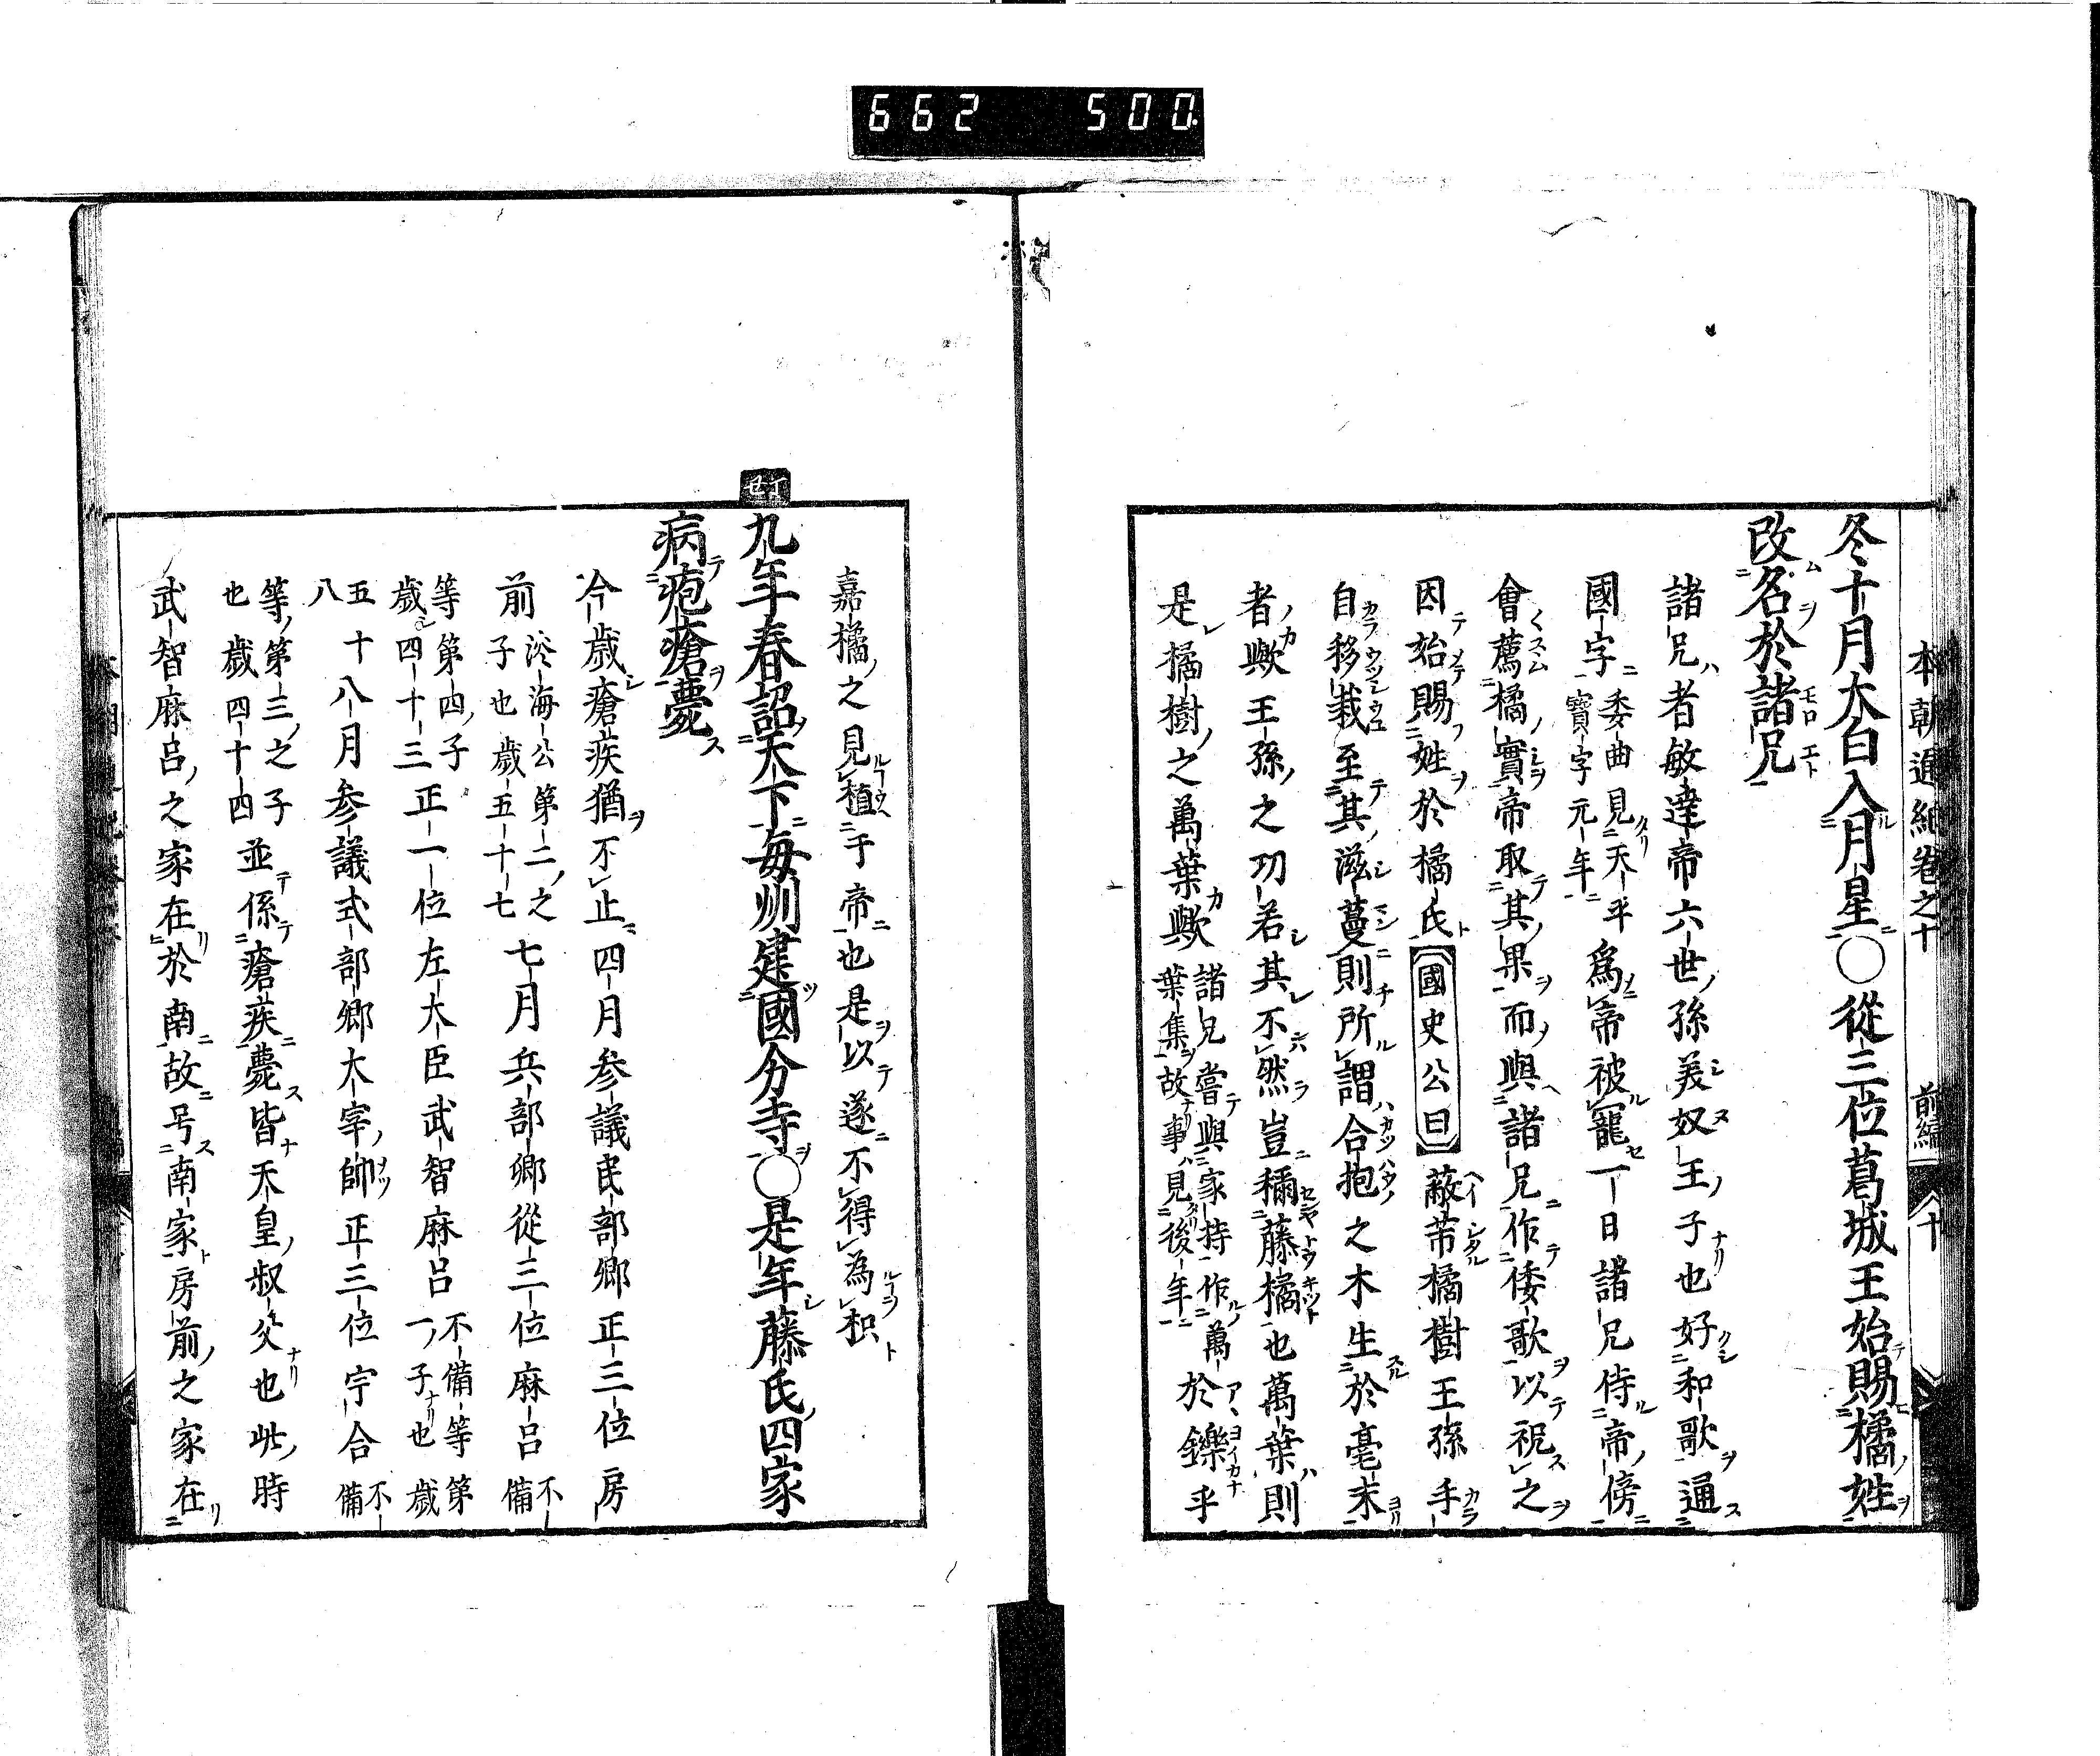 662 500
本朝通紀卷之十 前編 十
冬十月太白入月星○從三位葛城王始賜橘姓
改名於諸兄
諸兄者敏達帝六世孫美奴王子也好和歌通
國字委曲見天平寶字元年爲帝被寵一日諸兄侍帝傍
會薦橘實帝取其果而與諸兄作倭歌以祝之
因始賜姓於橘氏【國史公曰】蔽芾橘樹王孫手
自移栽至其滋蔓則所謂合抱之木生於毫末
者歟王孫之功若其不然豈稱藤橘也萬葉則
是橘樹之萬葉歟諸兄嘗與家持作萬葉集故事見後年於鑠乎
嘉橘之見植于帝也是以遂不得為枳
丁丑
九年春詔天下每州建國分寺○是年藤氏四家
病疱瘡薨
今歲瘡疾猶不止四月參議民部卿正三位房
前淡海公第二之子也歲五十七七月兵部卿從三位麻呂不備
等第四子歲四十三正一位左大臣武智麻呂不備等第一子也歲
五十八八月參議式部卿大宰帥正三位宇合不備
等第三之子也歲四十四並係瘡疾薨皆天皇叔父也此時
武智麻呂之家在於南故号南家房前之家在